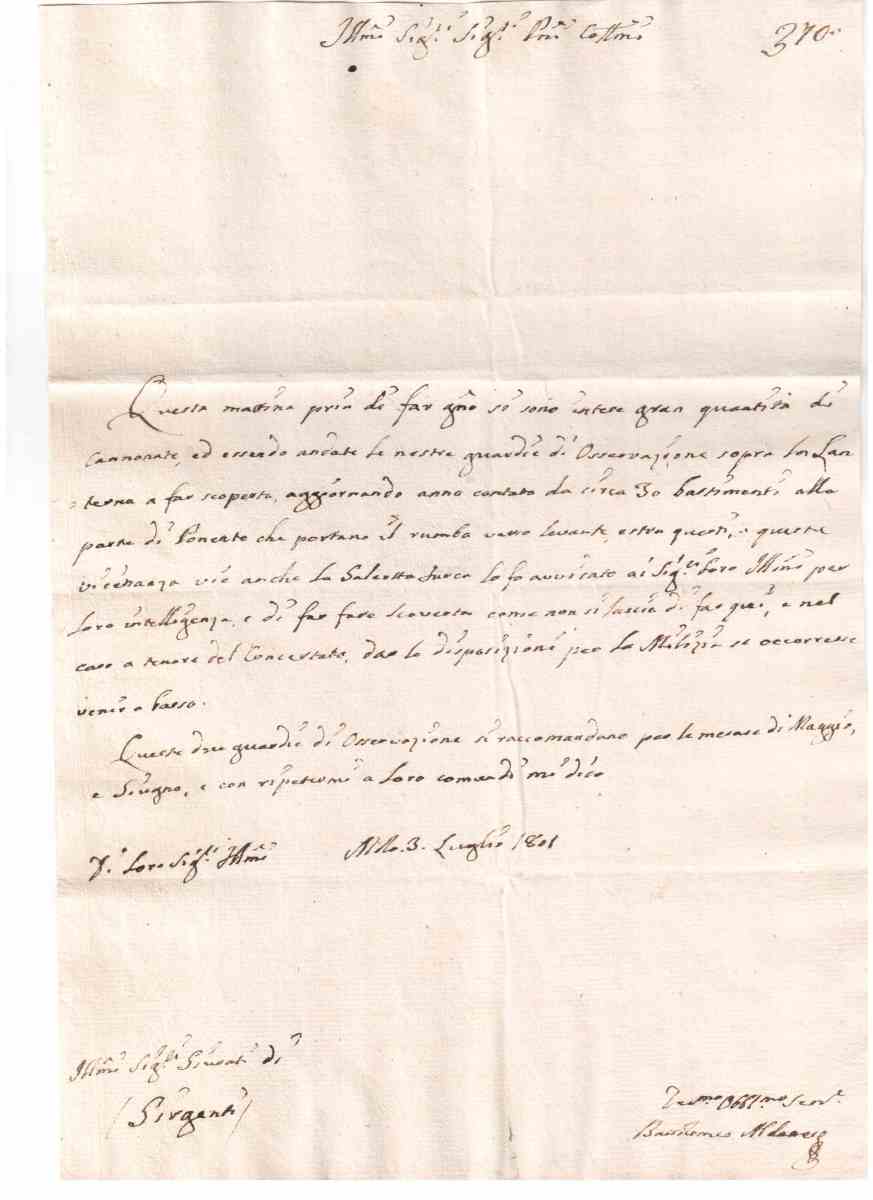 Illmi Sigri Sigri Pni Collmi
370.
Questa mattina pria di far gno si sono intese gran quantità di
Cannonate, ed essendo andate le nostre guardie di Osservazione sopra la Lan
=terna a far scoperta, aggiornando anno contato da circa 30 bastimenti alla
parte di Ponente che portano il rumbo verso levante, oltra questi, a questa
vicenanza vie anche la Galeotta turca lo fo avvisato ai Sigri Loro Illmi per
loro intelligenza, e di far fare scoverta come non si lascia di far quì, e nel
caso a tenore del Concertato, dar le disposizioni per la Milizia se occorresse
venir a basso.
Queste due guardie di Osservazione si raccomandano per le mesate di Maggio,
e Giugno, e con ripetermi a loro comandi mi dico
Di Loro Sigri Illmi
Molo. 3. Luglio 1801
Illmi Sigri Giurati di
(Girgenti)
Devmo Obblmo Serve
Bartolomeo